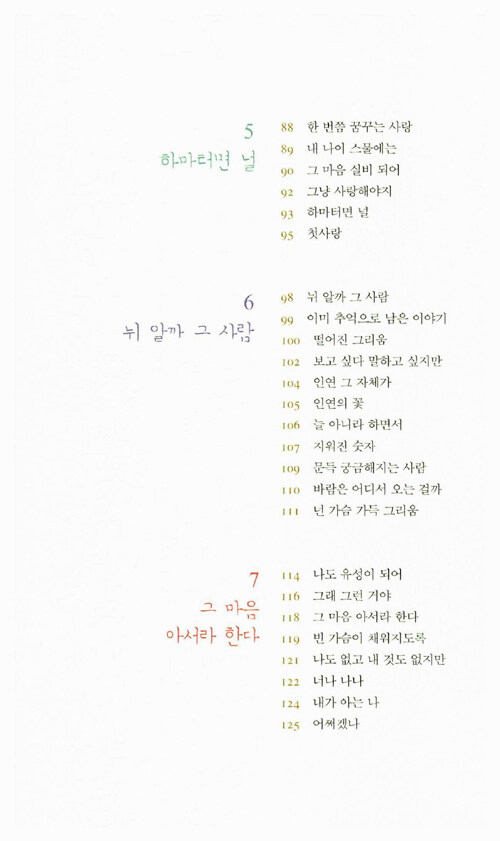 5
하마터면 널
88 한 번쯤 꿈꾸는 사랑
89 내 나이 스물에는
90 그 마음 실비 되어
92 그냥 사랑해야지
93 하마터면 널
95 첫사랑
6
뉘 알까 그 사람
98 뉘 알까 그 사람
99 이미 추억으로 남은 이야기
100 떨어진 그리움
102 보고 싶다 말하고 싶지만
104 인연 그 자체가
105 인연의 꽃
106 늘 아니라 하면서
107 지워진 숫자
109 문득 궁금해지는 사람
110 바람은 어디서 오는 걸까
111 넌 가슴 가득 그리움
7
그 마음
아서라 한다
114 나도 유성이 되어
116 그래 그런 거야
118 그 마음 아서라 한다
119 빈 가슴이 채워지도록
121 나도 없고 내 것도 없지만
122 너나 나나
124 내가 아는 나
125 어쩌겠나